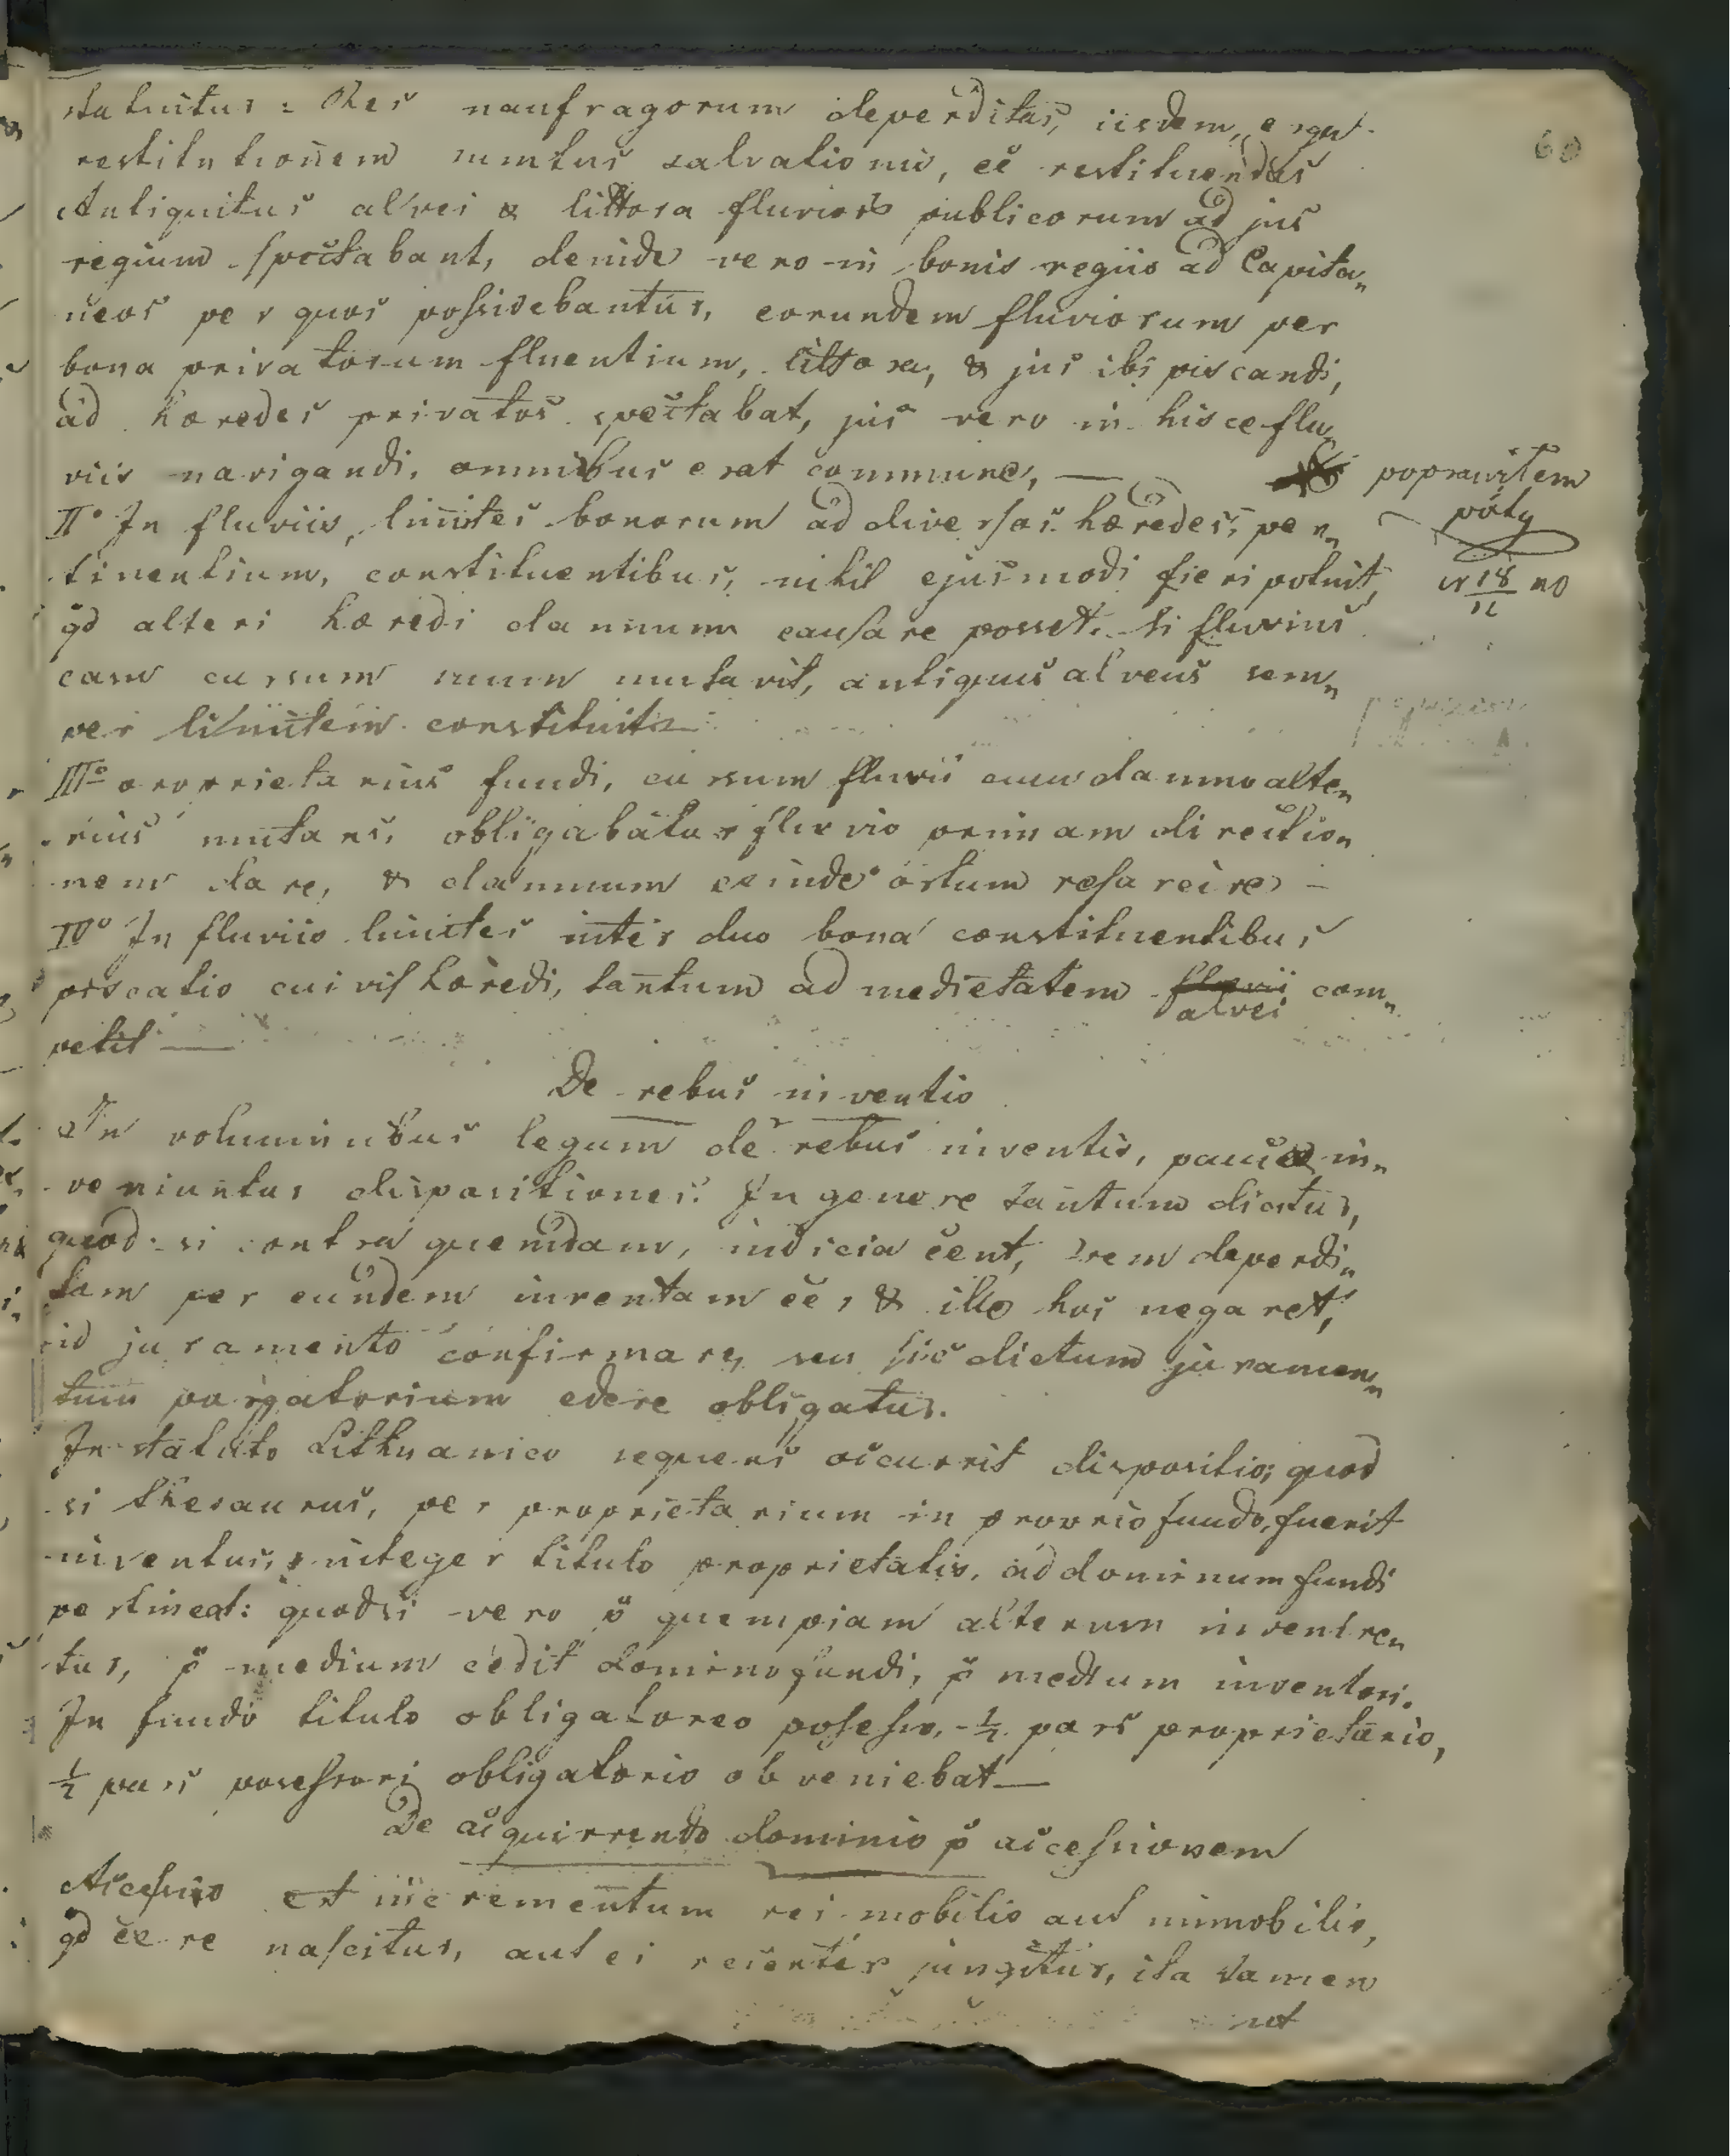 statuitur: Res naufragorum deperditas, iisdem, erga
restitutionem sumtus salvationis, eē restituendas
Antiquitus alvei & littora fluvior publicorum ad jus
regium spectabant, deinde vero in bonis regiis ad Capita„
neos per quos possidebantur, eorundem fluviorum per
bona privatorum fluentium, littora, & jus ibi piscandi,
ad hæredes privatos spectabat, jus vero in hisce flu„
viis navigandi, omnibus erat commune, —
poprawiłem
póty
w 18/11 no
60
II° In fluviis, limites bonorum ad diversos hæredes, per„
tinentium, constituentibus, nihil ejusmodi fieri potuit,
qd alteri hæredi damnum causare posset. Si fluvius
eam cursum suum mutavit, antiquus alveus sem„
per limitem constituit —
III° proprietarius fundi, cursum fluvii cum damno alte„
rius mutans, obligabatur fluvio primam direction„
nem dare, & damnum exinde ortum resarcire —
IV° In fluviis limites inter duo bona constituentibus
piscatio cuivis hæredi, tantum ad medietatem fluvii alvei com„
petit —
De rebus inventis
In voluminibus legum de rebus inventis, paucæ in„
veniuntur dispositiones. In genere tantum dicitur,
quod si contra quemdam, indicia eēnt, rem deperdi„
tam per eundem inventam eē, & ille hos negaret,
id juramento confirmare, seu sic dictum juramen„
tum purgatorium edere obligatur.
In statuto Lithuanico sequens occurrit dispositio; quod
si thesaurus, per proprietarium in proprio fundo, fuerit
inventus, integer titulo proprietatis, ad dominum fundi
pertineat: quodsi vero p̄ quempiam alterum inventre„
tur, p̄ medium cedit domino fundi, p̄ medium inventori.
In fundo titulo obligatoreo posesso, ½ pars proprietario,
½ pars posessori obligatorio obveniebat —
De acquirrendo dominio p̄ accessionem
Accessio et incrementum rei mobilis aut immobilis,
qd ex re nascitur, aut ei recenter jungitur, ita tamen
ut